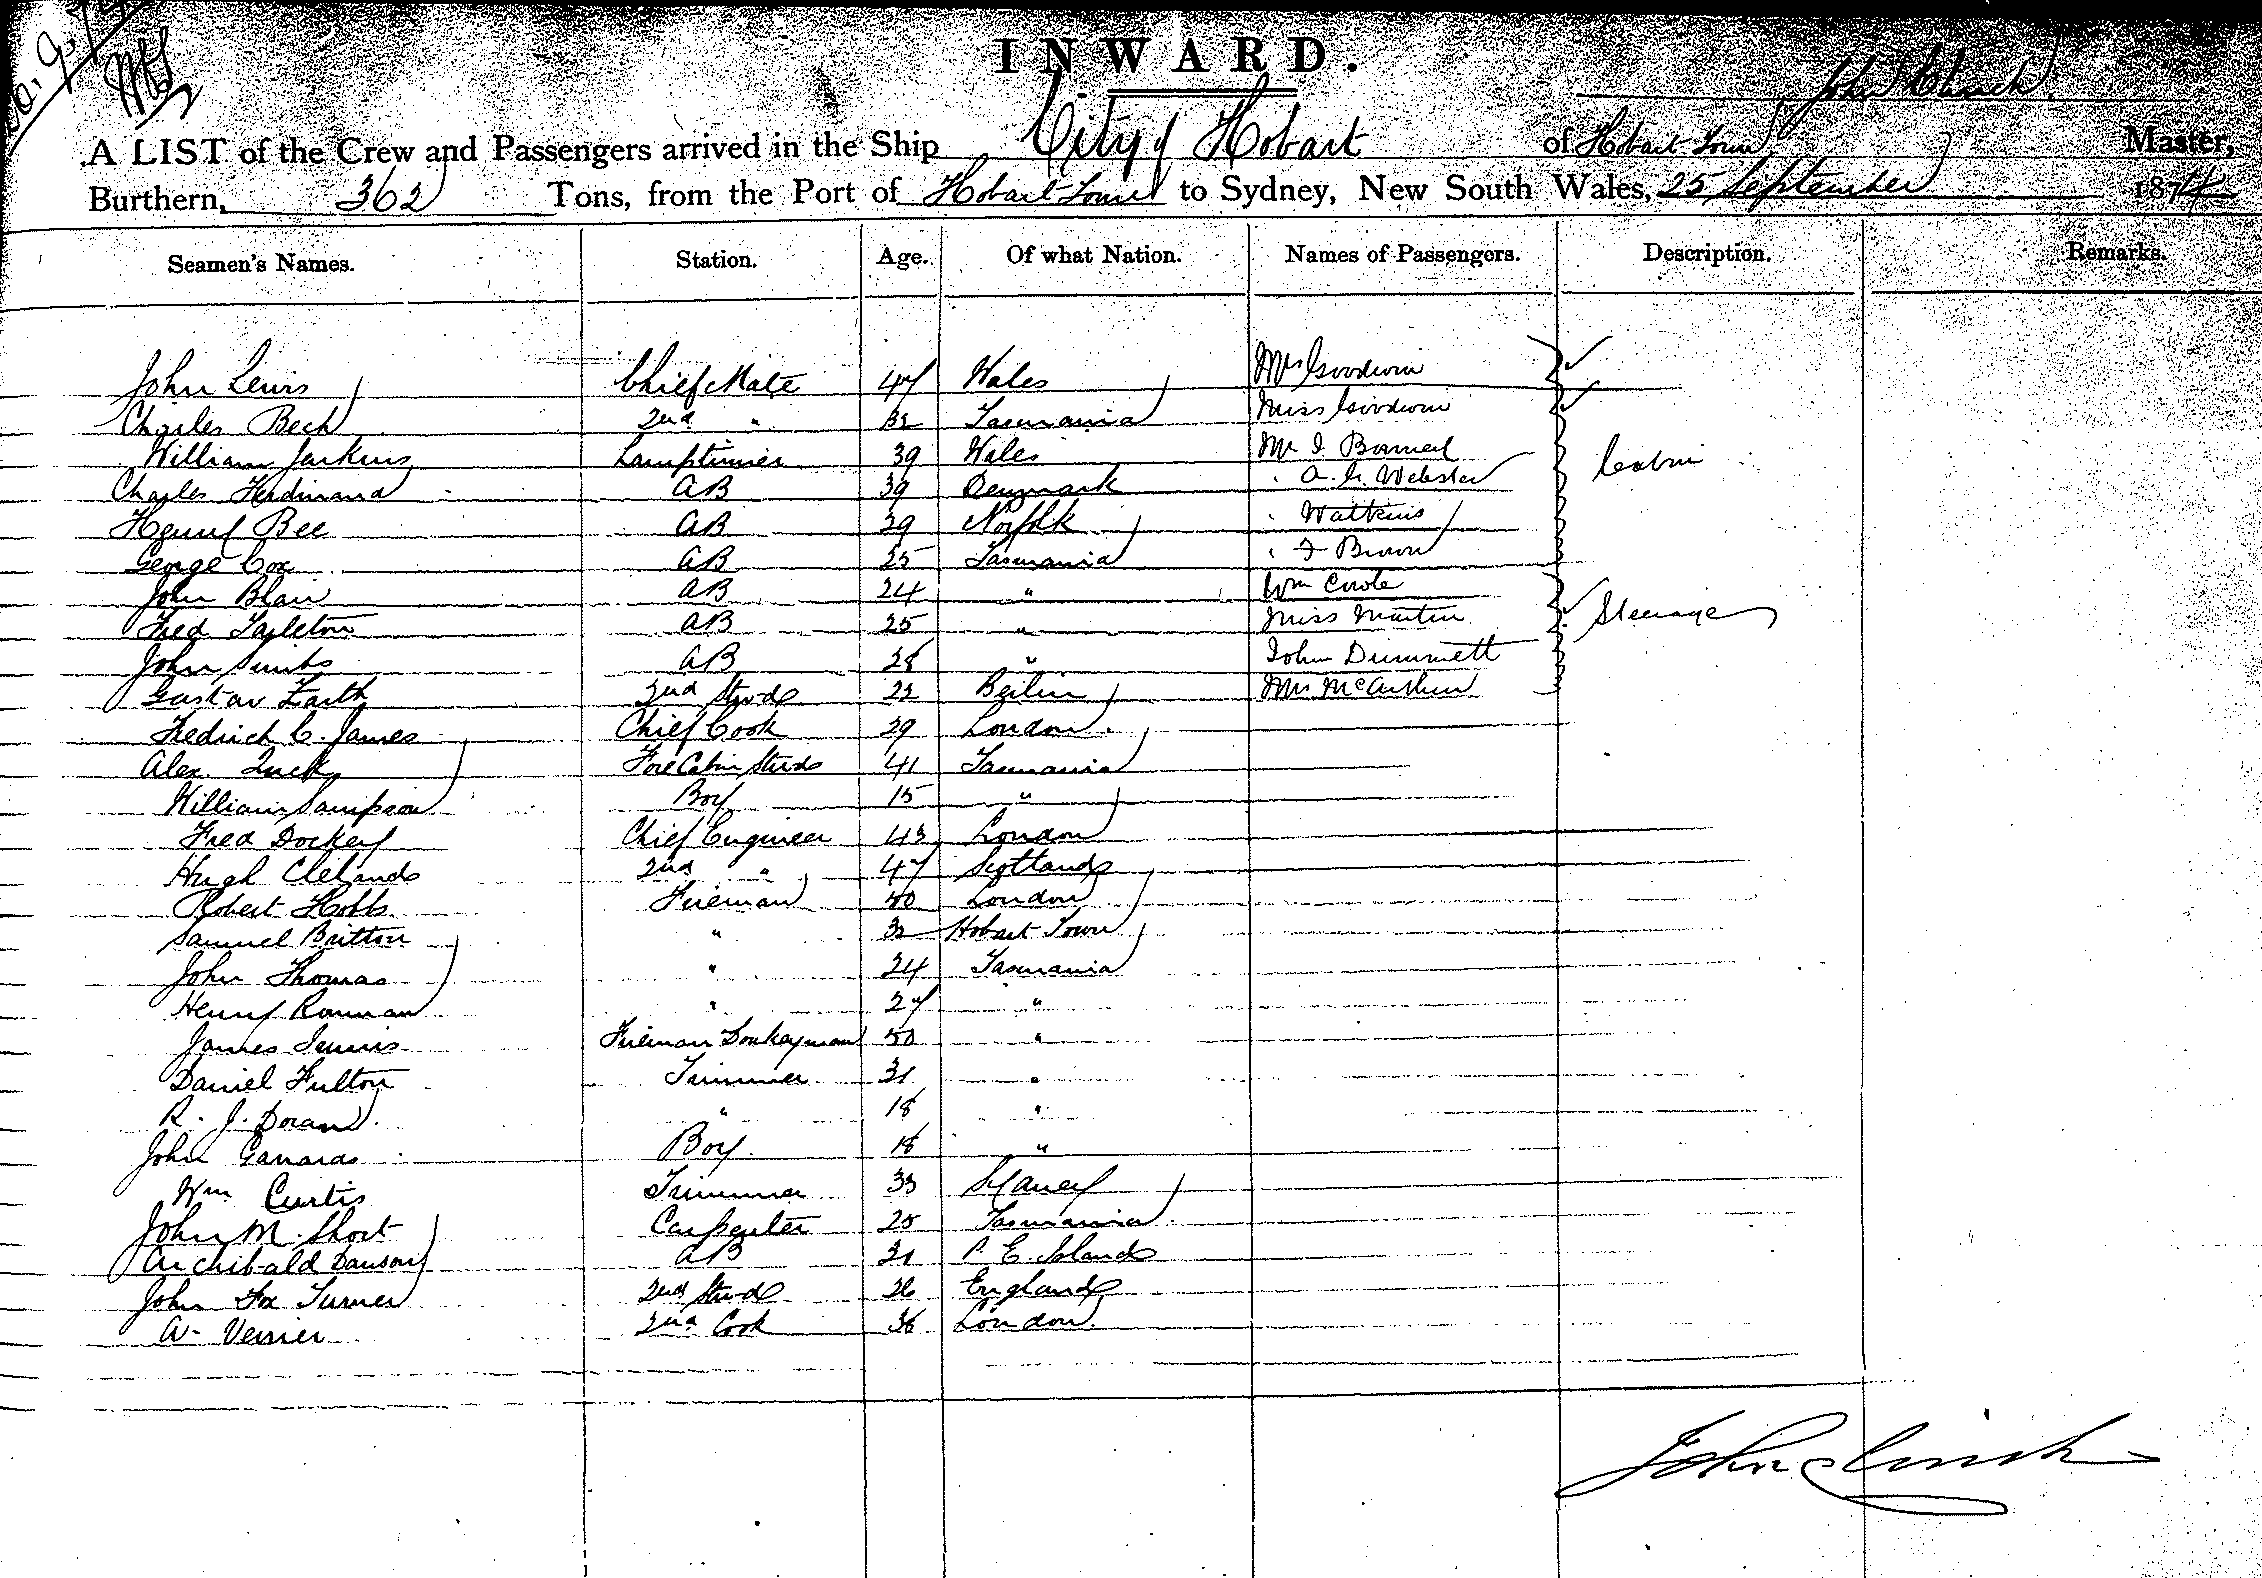 INWARD.
John Clinch
A LIST of the Crew and Passengers arrived in the Ship City of Hobart of Hobart Town Master,
Burthern, 362 Tons, from the Port of Hobart Town to Sydney, New South Wales, 25 September 1874
Seamen's Names. Station. Age. Of what Nation. Names of Passengers. Description. Remarks.
John Lewis Chief Mate 47 Wales Mrs Goodwin
Charles Beck 2nd " 32 Tasmania Miss Goodwin
William Jenkins Lamptrimer 39 Wales Mr Cabin
Charles Ferdinand AB 39 Denmark " A. G. Webster
Henry Bee AB 29 Norfolk " Watkins
George Cox AB 25 Tasmania " F Brown
John Blair AB 24 " Wm
Fred Tapleton AB 25 " Miss Martin Steerage
John AB 28 " John Dummett
Gustav 2nd Stwd 22 Berlin Mrs McArthur
Fredrick C. James Chief Cook 29 London
Alex. Luck Fore Cabin Stwd 41 Tasmania
William Sampson Boy 15 "
Fred Dockey Chief Engineer 43 London
Hugh Cleland 2nd " 47 Scotland
Robert Hobbs Fireman 50 London
Samuel Britton " 32 Hobart Town
John Thomas " 24 Tasmania
Henry " 27 "
James Fireman Donkeyman 50 "
Daniel Fulton Trimmer 31 "
R. J. Doran " 18 "
John Boy 18 "
Wm Curtis Trimmer 33 Sydney
John M. Short Carpenter 25 Tasmania
Archibald Dawson AB 31 P. E. Island
John Fox Turner 2nd Stwd 26 England
A. Verrier 2nd Cook 36 London
John Clinch